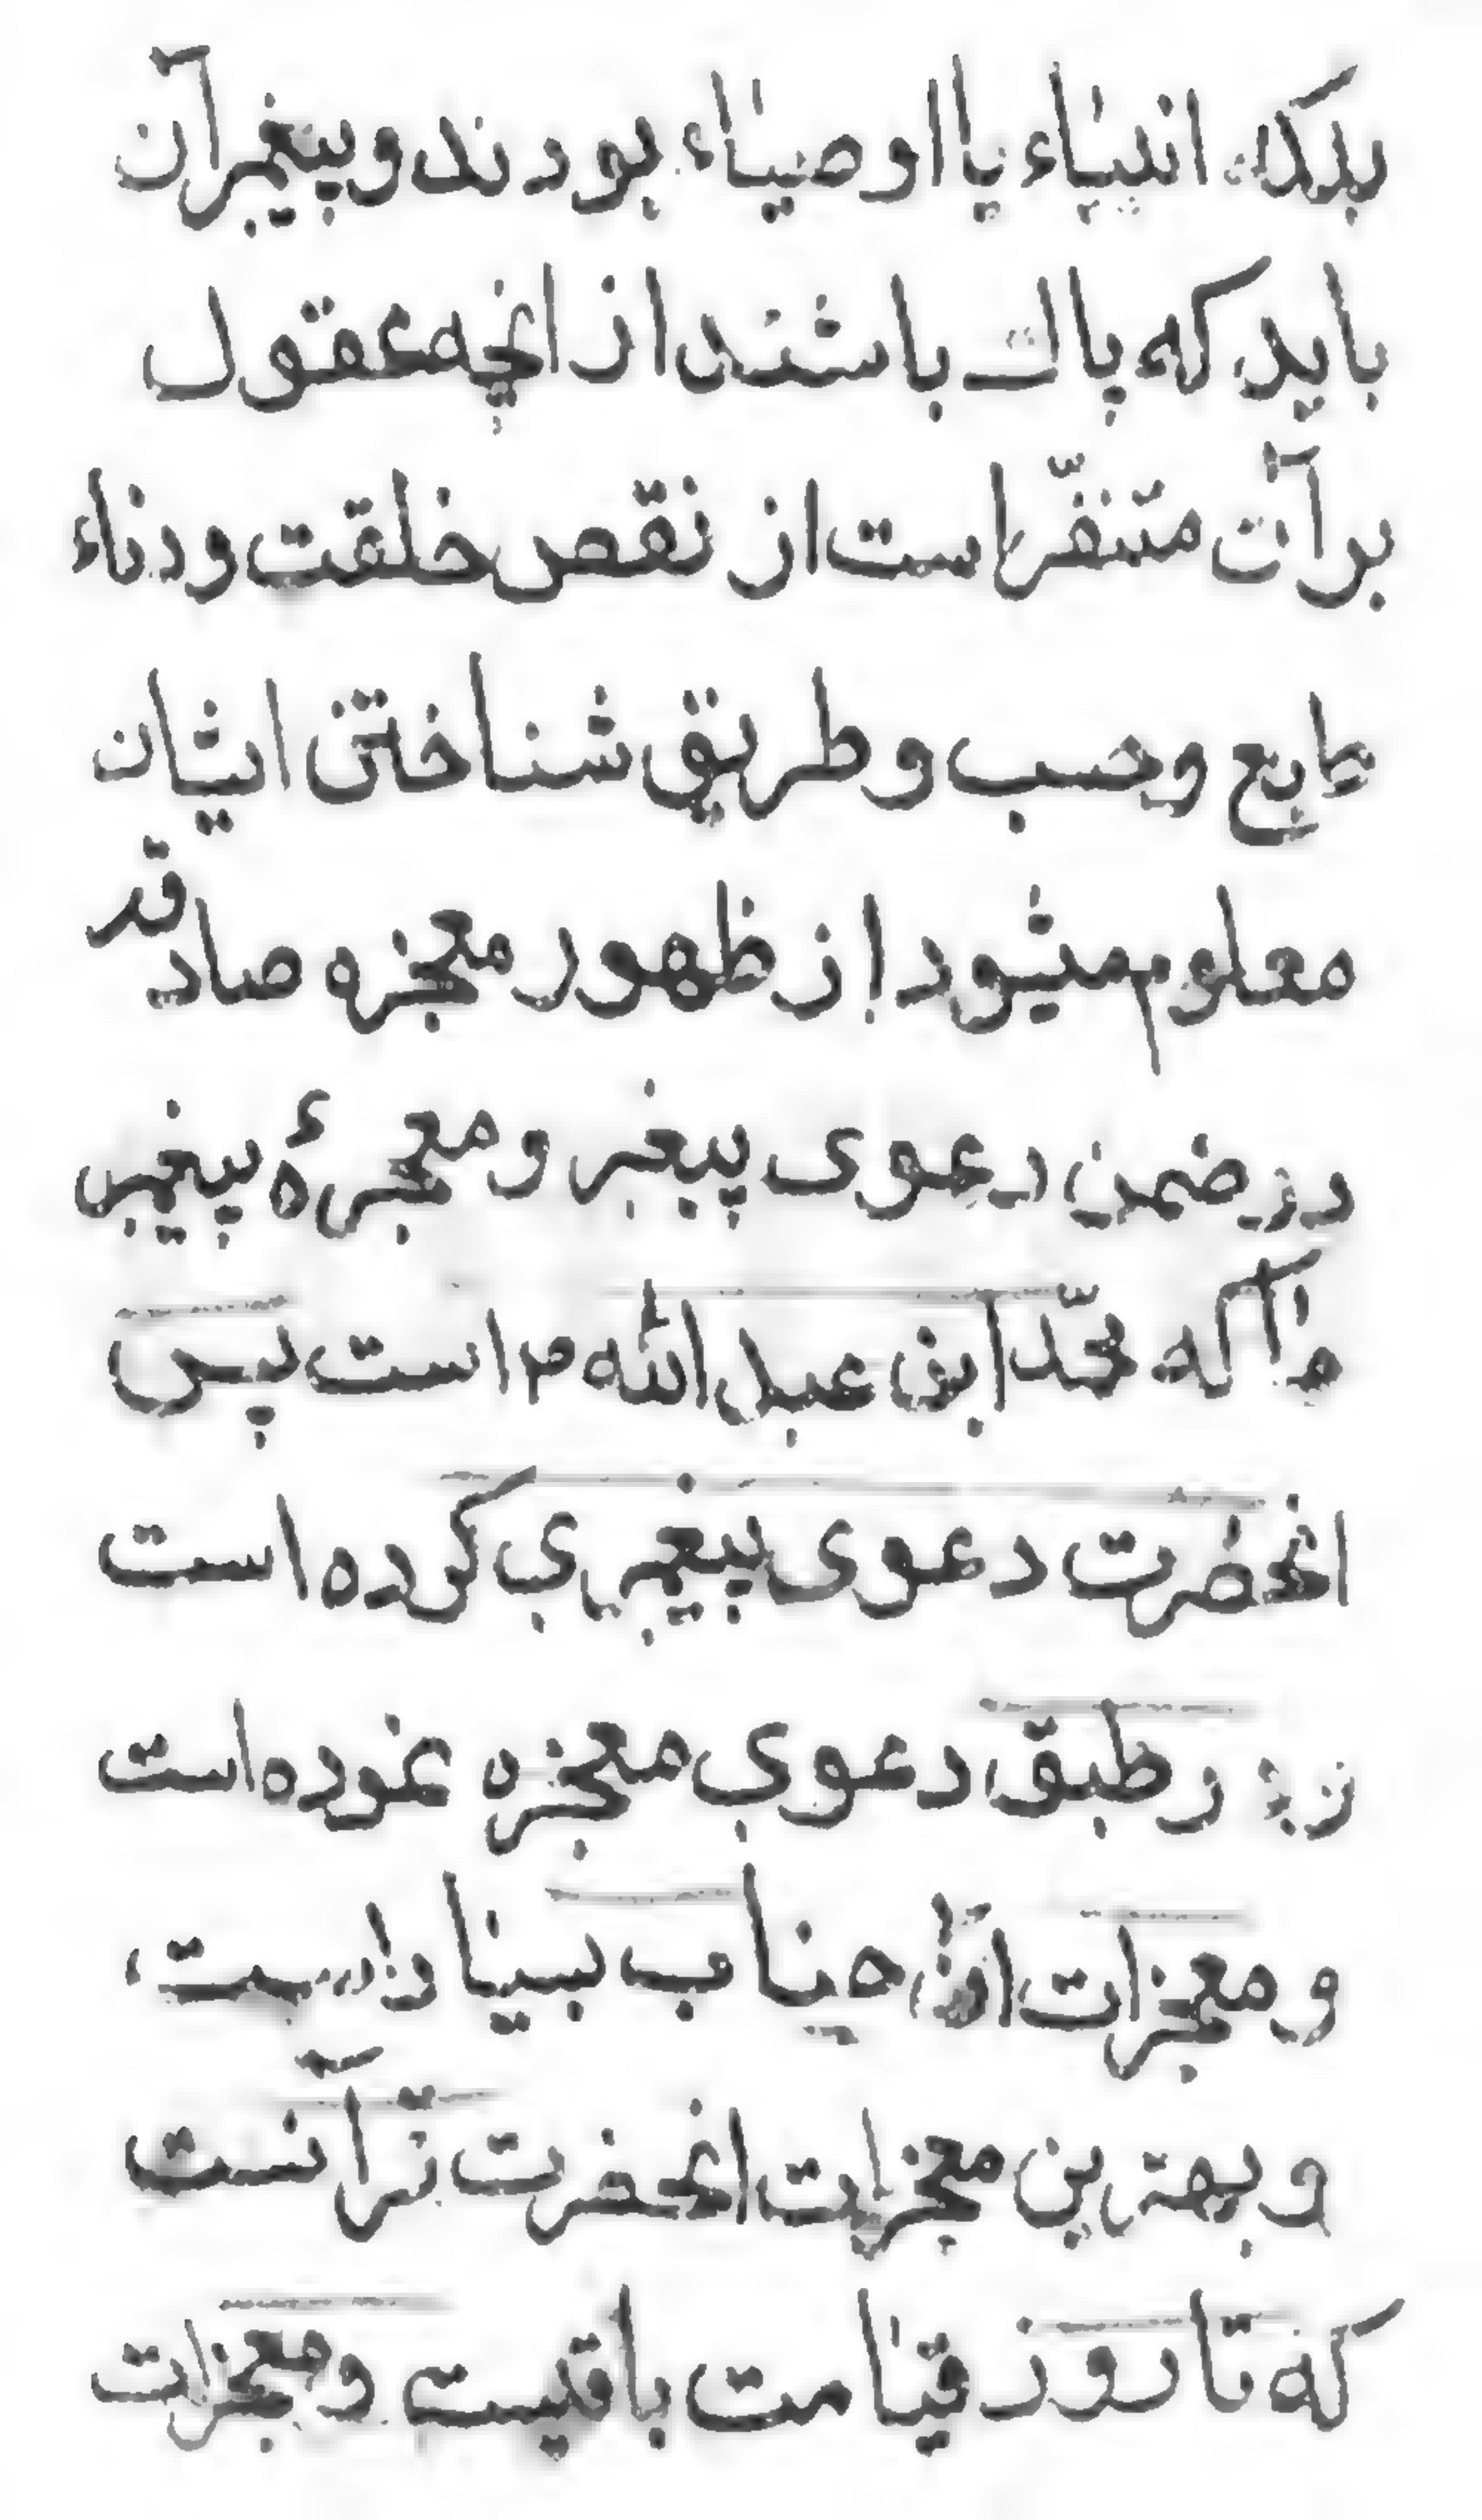 بلکه انبیاء یا اوصیاء بودند و پیغمبران
باید که پاك باشند از انچه عقول
برآن متنفّر است از نقص خلقت و دناء
طایع و حسب و طریق شناختن ایشان
معلوم میشود از ظهور معجزه صادقه
در ضمن دعوی پیغمبر و معجزهٔ پیغمبر
ما که محمّد ابن عبد الله ص است پس
انحضرت دعوی پیغمبری کرده است
رطبق دعوی معجزه نموده است
و معجزات جناب بسیار است
و بهترین معجزات انحضرت قرآنست
که تا روز قیامت باقیست و معجزات